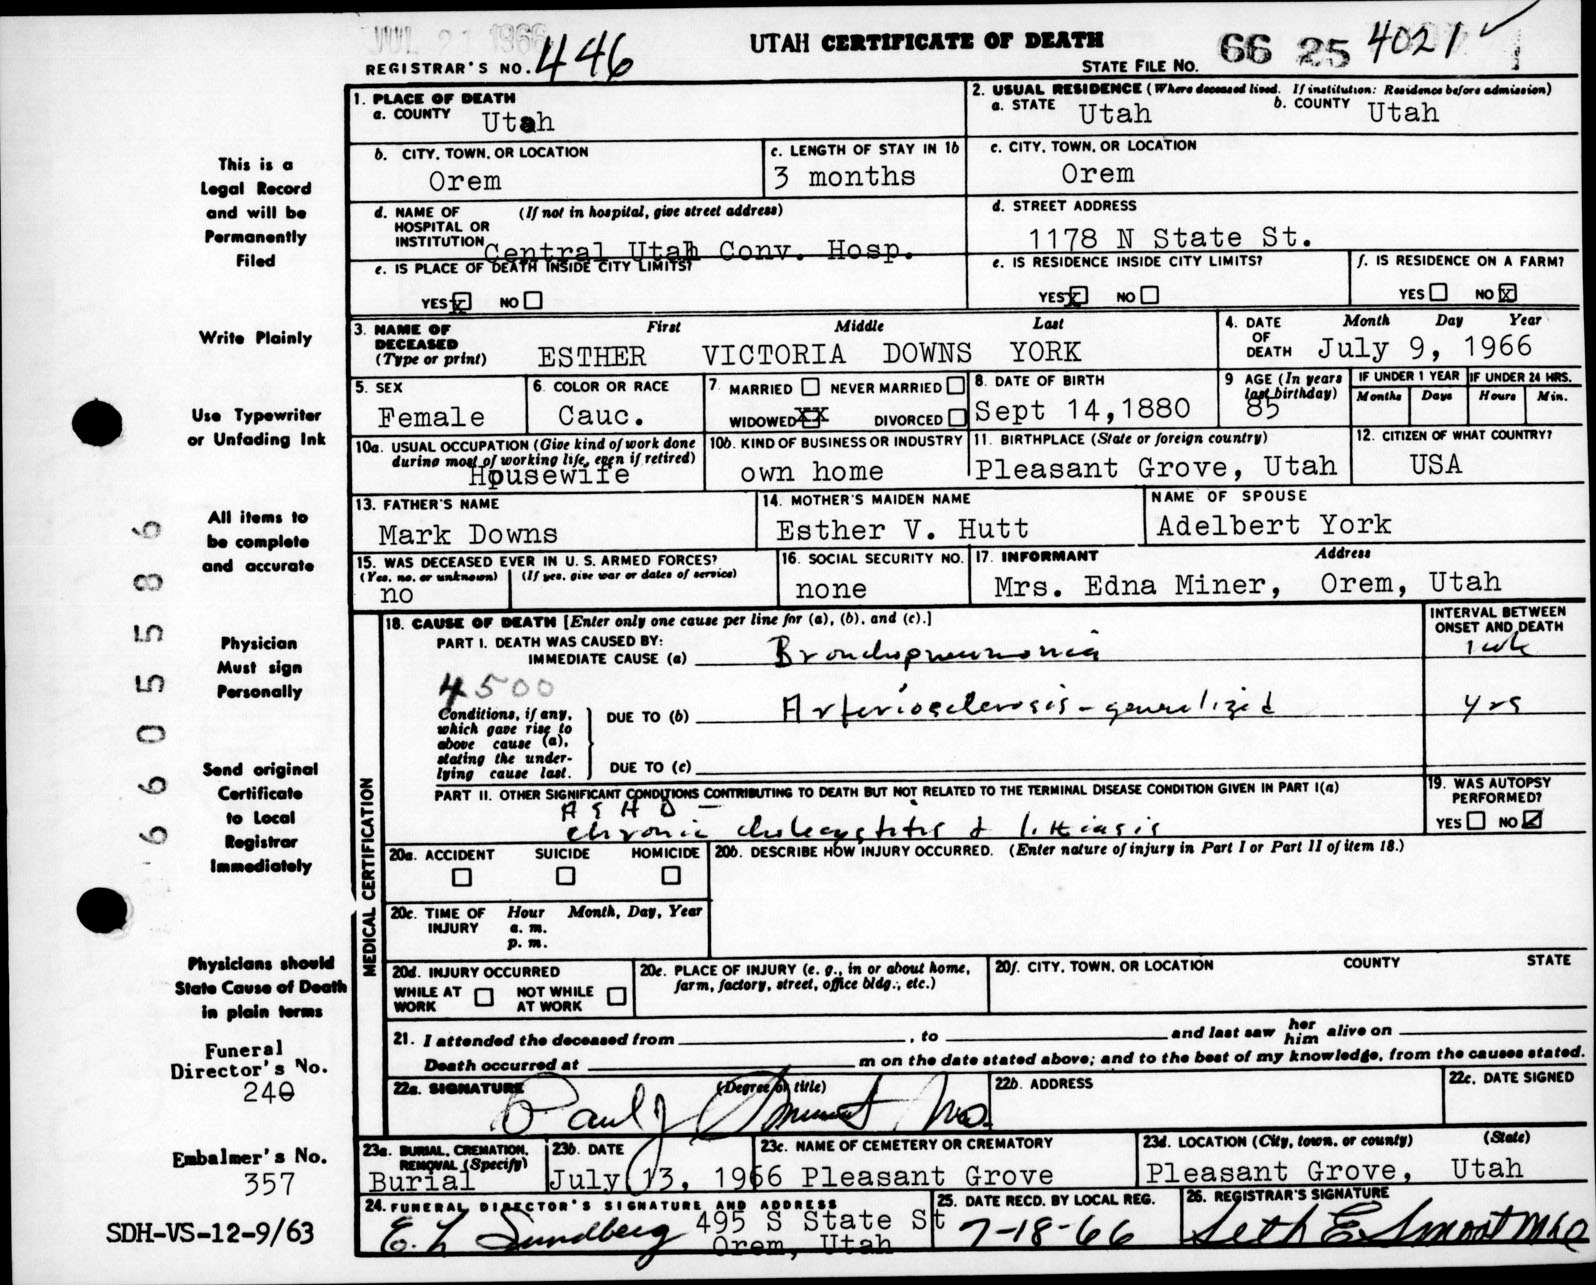 JUL 21 1966
UTAH CERTIFICATE OF DEATH
REGISTRAR'S NO. 446
STATE FILE NO. 66 25 4021 ✓
1. PLACE OF DEATH
a. COUNTY Utah
2. USUAL RESIDENCE (Where deceased lived. If institution: Residence before admission)
a. STATE Utah b. COUNTY Utah
b. CITY, TOWN, OR LOCATION Orem
c. LENGTH OF STAY IN 1b 3 months
c. CITY, TOWN, OR LOCATION Orem
d. NAME OF HOSPITAL OR INSTITUTION (If not in hospital, give street address)
Central Utah Conv. Hosp.
d. STREET ADDRESS
1178 N State St.
e. IS PLACE OF DEATH INSIDE CITY LIMITS?
YES x NO
e. IS RESIDENCE INSIDE CITY LIMITS?
YES x NO
f. IS RESIDENCE ON A FARM?
YES NO x
3. NAME OF DECEASED (Type or print) First Middle Last
ESTHER VICTORIA DOWNS YORK
4. DATE OF DEATH Month Day Year
July 9, 1966
5. SEX Female
6. COLOR OR RACE Cauc.
7 MARRIED NEVER MARRIED
WIDOWED XX DIVORCED
8. DATE OF BIRTH Sept 14,1880
9 AGE (In years last birthday) 85
IF UNDER 1 YEAR Months Days
IF UNDER 24 HRS. Hours Min.
10a. USUAL OCCUPATION (Give kind of work done during most of working life, even if retired)
Housewife
10b. KIND OF BUSINESS OR INDUSTRY own home
11. BIRTHPLACE (State or foreign country)
Pleasant Grove, Utah
12. CITIZEN OF WHAT COUNTRY?
USA
13. FATHER'S NAME Mark Downs
14. MOTHER'S MAIDEN NAME Esther V. Hutt
NAME OF SPOUSE Adelbert York
15. WAS DECEASED EVER IN U. S. ARMED FORCES?
(Yes, no, or unknown) (If yes, give war or dates of service)
no
16. SOCIAL SECURITY NO. none
17. INFORMANT Address
Mrs. Edna Miner, Orem, Utah
MEDICAL CERTIFICATION
18. CAUSE OF DEATH [Enter only one cause per line for (a), (b), and (c).]
INTERVAL BETWEEN ONSET AND DEATH
PART I. DEATH WAS CAUSED BY:
IMMEDIATE CAUSE (a) Bronchopneumonia 1 wk
4500
Conditions, if any, which gave rise to above cause (a), stating the underlying cause last.
DUE TO (b) Arteriosclerosis - generalized yrs
DUE TO (c)
PART II. OTHER SIGNIFICANT CONDITIONS CONTRIBUTING TO DEATH BUT NOT RELATED TO THE TERMINAL DISEASE CONDITION GIVEN IN PART I(a)
A S H D -
chronic cholecystitis & lithiasis
19. WAS AUTOPSY PERFORMED?
YES NO ✓
20a. ACCIDENT SUICIDE HOMICIDE
20b. DESCRIBE HOW INJURY OCCURRED. (Enter nature of injury in Part I or Part II of item 18.)
20c. TIME OF INJURY Hour Month, Day, Year
a. m.
p. m.
20d. INJURY OCCURRED
WHILE AT WORK NOT WHILE AT WORK
20e. PLACE OF INJURY (e. g., in or about home, farm, factory, street, office bldg., etc.)
20f. CITY, TOWN, OR LOCATION COUNTY STATE
21. I attended the deceased from , to and last saw her him alive on
Death occurred at m on the date stated above; and to the best of my knowledge, from the causes stated.
22a. SIGNATURE (Degree or title)
Paul J
22b. ADDRESS
22c. DATE SIGNED
23a. BURIAL, CREMATION, REMOVAL (Specify)
Burial
23b. DATE July 13, 1966
23c. NAME OF CEMETERY OR CREMATORY
Pleasant Grove
23d. LOCATION (City, town, or county) (State)
Pleasant Grove, Utah
24. FUNERAL DIRECTOR'S SIGNATURE AND ADDRESS
E. L Sundberg 495 S State St
Orem, Utah
25. DATE RECD. BY LOCAL REG.
7-18-66
26. REGISTRAR'S SIGNATURE
Seth E Smoot MD
This is a
Legal Record
and will be
Permanently
Filed
Write Plainly
Use Typewriter
or Unfading Ink
All items to
be complete
and accurate
Physician
Must sign
Personally
Send original
Certificate
to Local
Registrar
Immediately
Physicians should
State Cause of Death
in plain terms
Funeral
Director's No.
240
Embalmer's No.
357
SDH-VS-12-9/63
66005586